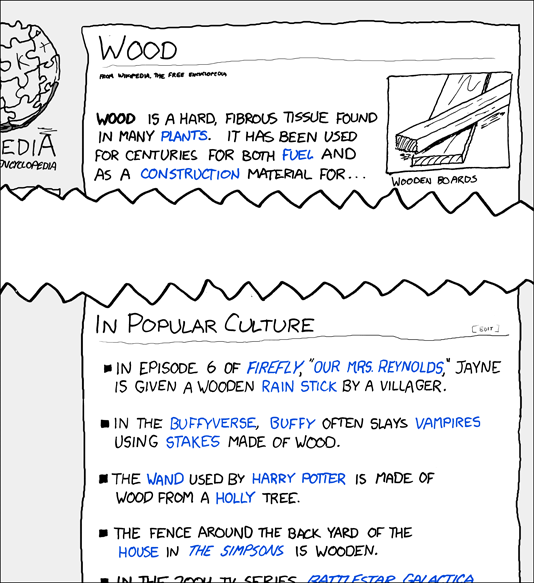 WOOD
FROM WIKIPEDIA, THE FREE ENCYCLOPEDIA
EDIA
ENCYCLOPEDIA
WOOD IS A HARD, FIBROUS TISSUE FOUND
IN MANY PLANTS. IT HAS BEEN USED
FOR CENTURIES FOR BOTH FUEL AND
AS A CONSTRUCTION MATERIAL FOR...
WOODEN BOARDS
IN POPULAR CULTURE
[EDIT]
■ IN EPISODE 6 OF FIREFLY, "OUR MRS. REYNOLDS," JAYNE
IS GIVEN A WOODEN RAIN STICK BY A VILLAGER.
■ IN THE BUFFYVERSE, BUFFY OFTEN SLAYS VAMPIRES
USING STAKES MADE OF WOOD.
■ THE WAND USED BY HARRY POTTER IS MADE OF
WOOD FROM A HOLLY TREE.
■ THE FENCE AROUND THE BACK YARD OF THE
HOUSE IN THE SIMPSONS IS WOODEN.
■ IN THE 2004 TV SERIES BATTLESTAR GALACTICA